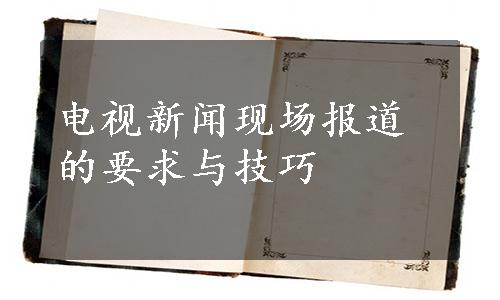 电视新闻现场报道
的要求与技巧